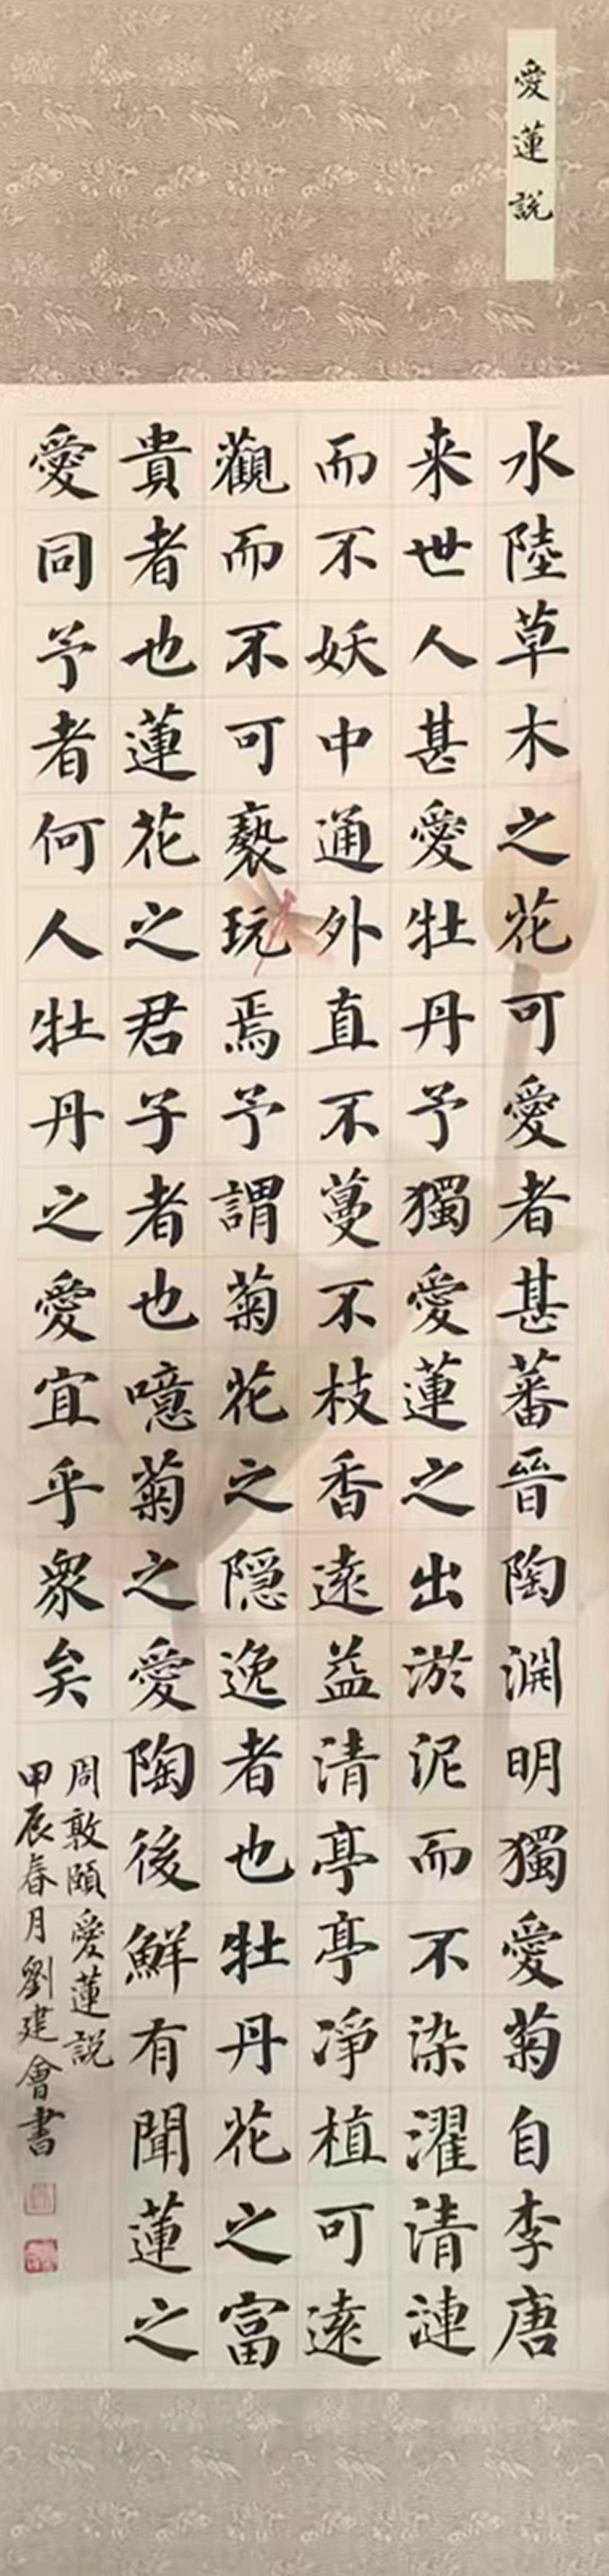 愛蓮說
水陸草木之花可愛者甚蕃晉陶淵明獨愛菊自李唐
来世人甚愛牡丹予獨愛蓮之出淤泥而不染濯清漣
而不妖中通外直不蔓不枝香遠益清亭亭凈植可遠
觀而不可褻玩焉予謂菊花之隱逸者也牡丹花之富
貴者也蓮花之君子者也噫菊之愛陶後鮮有聞蓮之
愛同予者何人牡丹之愛宜乎衆矣
周敦頤愛蓮説
甲辰春月劉建會書